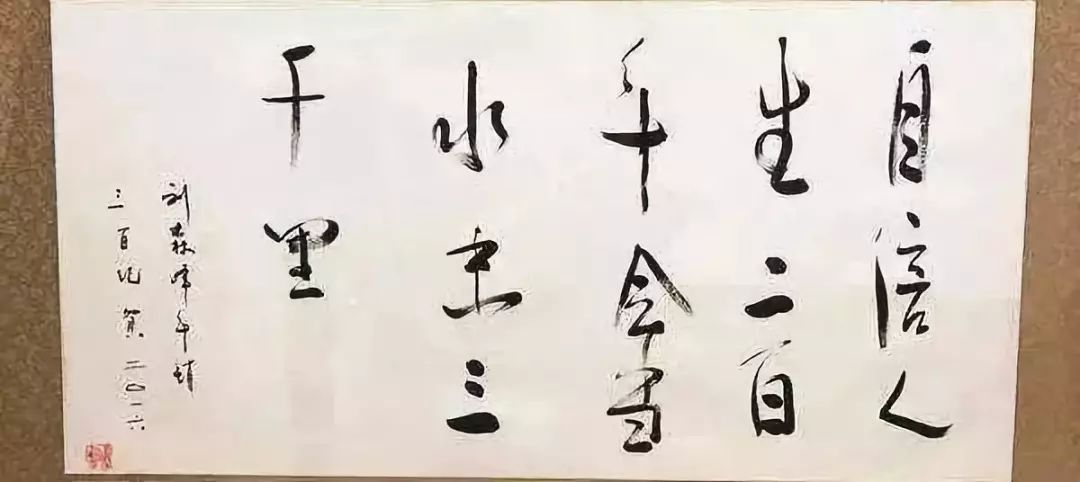 自信人
生二百
年会当
水击三
千里
刘森峰年销
三百亿 贺 二〇一六